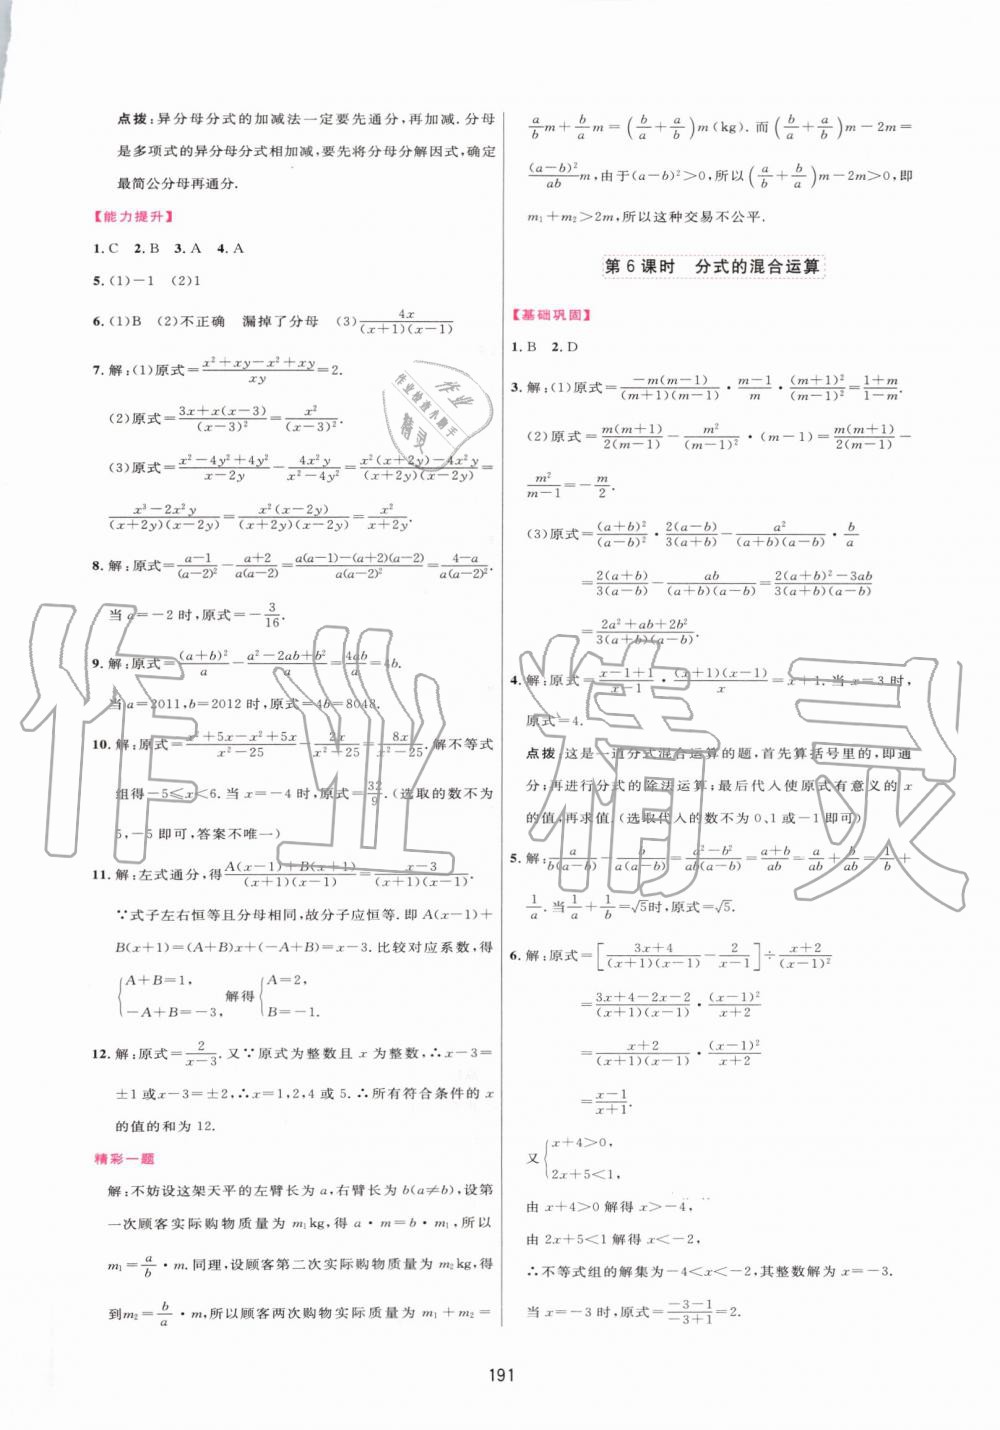 点拨:异分母分式的加减法一定要先通分,再加减.分母
是多项式的异分母分式相加减,要先将分母分解因式,确定
最简公分母再通分.
【能力提升】
1. C  2. B  3. A  4. A
5. (1)-1  (2)1
6. (1)B  (2)不正确  漏掉了分母  (3)4x/((x+1)(x-1))
7. 解:(1)原式=(x²+xy-x²+xy)/(xy)=2.
(2)原式=(3x+x(x-3))/((x-3)²)=x²/((x-3)²).
(3)原式=(x²-4y²+4y²)/(x-2y)-4x²y/(x²-4y²)=(x²(x+2y)-4x²y)/((x+2y)(x-2y))=
(x³-2x²y)/((x+2y)(x-2y))=(x²(x-2y))/((x+2y)(x-2y))=x²/(x+2y).
8. 解:原式=(a-1)/((a-2)²)-(a+2)/(a(a-2))=(a(a-1)-(a+2)(a-2))/(a(a-2)²)=(4-a)/(a(a-2)²).
当a=-2时,原式=-3/16.
9. 解:原式=(a+b)²/a-(a²-2ab+b²)/a=4ab/a=4b.
当a=2011,b=2012时,原式=4b=8048.
10. 解:原式=(x²+5x-x²+5x)/(x²-25)-2x/(x²-25)=8x/(x²-25).解不等式
组得-5≤x<6.当x=-4时,原式=32/9.(选取的数不为
5,-5即可,答案不唯一)
11. 解:左式通分,得(A(x-1)+B(x+1))/((x+1)(x-1))=(x-3)/((x+1)(x-1)).
∵式子左右恒等且分母相同,故分子应恒等.即A(x-1)+
B(x+1)=(A+B)x+(-A+B)=x-3.比较对应系数,得
{A+B=1, -A+B=-3, 解得{A=2, B=-1.
12. 解:原式=2/(x-3).又∵原式为整数且x为整数,∴x-3=
±1或x-3=±2,∴x=1,2,4或5.∴所有符合条件的x
的值的和为12.
精彩一题
解:不妨设这架天平的左臂长为a,右臂长为b(a≠b),设第
一次顾客实际购物质量为m₁kg,得a·m=b·m₁,所以
m₁=a/b·m.同理,设顾客第二次实际购物质量为m₂kg,得
到m₂=b/a·m,所以顾客两次购物实际质量为m₁+m₂=
a/b m+b/a m=(a/b+b/a)m(kg).而(a/b+b/a)m-2m=
(a-b)²/ab m,由于(a-b)²>0,所以(a/b+b/a)m-2m>0,即
m₁+m₂>2m,所以这种交易不公平.
第6课时  分式的混合运算
【基础巩固】
1. B  2. D
3. 解:(1)原式=(-m(m-1))/((m+1)(m-1))·(m-1)/m·(m+1)²/(m-1)²=(1+m)/(1-m).
(2)原式=(m(m+1))/(2(m-1))-m²/(m-1)²·(m-1)=(m(m+1))/(2(m-1))-
m²/(m-1)=-m/2.
(3)原式=(a+b)²/(a-b)²·2(a-b)/3(a+b)-a²/((a+b)(a-b))·b/a
=2(a+b)/3(a-b)-ab/((a+b)(a-b))=(2(a+b)²-3ab)/(3(a+b)(a-b))
=(2a²+ab+2b²)/(3(a+b)(a-b)).
4. 解:原式=(x-1+1)/(x-1)·((x+1)(x-1))/x=x+1.当x=3时,
原式=4.
点拨:这是一道分式混合运算的题,首先算括号里的,即通
分;再进行分式的除法运算;最后代入使原式有意义的x
的值,再求值.(选取代入的数不为0,1或-1即可)
5. 解:a/(b(a-b))-b/(a(a-b))=(a²-b²)/(ab(a-b))=(a+b)/ab=a/ab+b/ab=1/b+
1/a.当1/a+1/b=√5时,原式=√5.
6. 解:原式=[(3x+4)/((x+1)(x-1))-2/(x-1)]÷(x+2)/(x-1)²
=(3x+4-2x-2)/((x+1)(x-1))·(x-1)²/(x+2)
=(x+2)/((x+1)(x-1))·(x-1)²/(x+2)
=(x-1)/(x+1).
又{x+4>0, 2x+5<1,
由x+4>0解得x>-4,
由2x+5<1解得x<-2,
∴不等式组的解集为-4<x<-2,其整数解为x=-3.
当x=-3时,原式=(-3-1)/(-3+1)=2.
191
作业精灵
作业
作业检查小助手
精灵